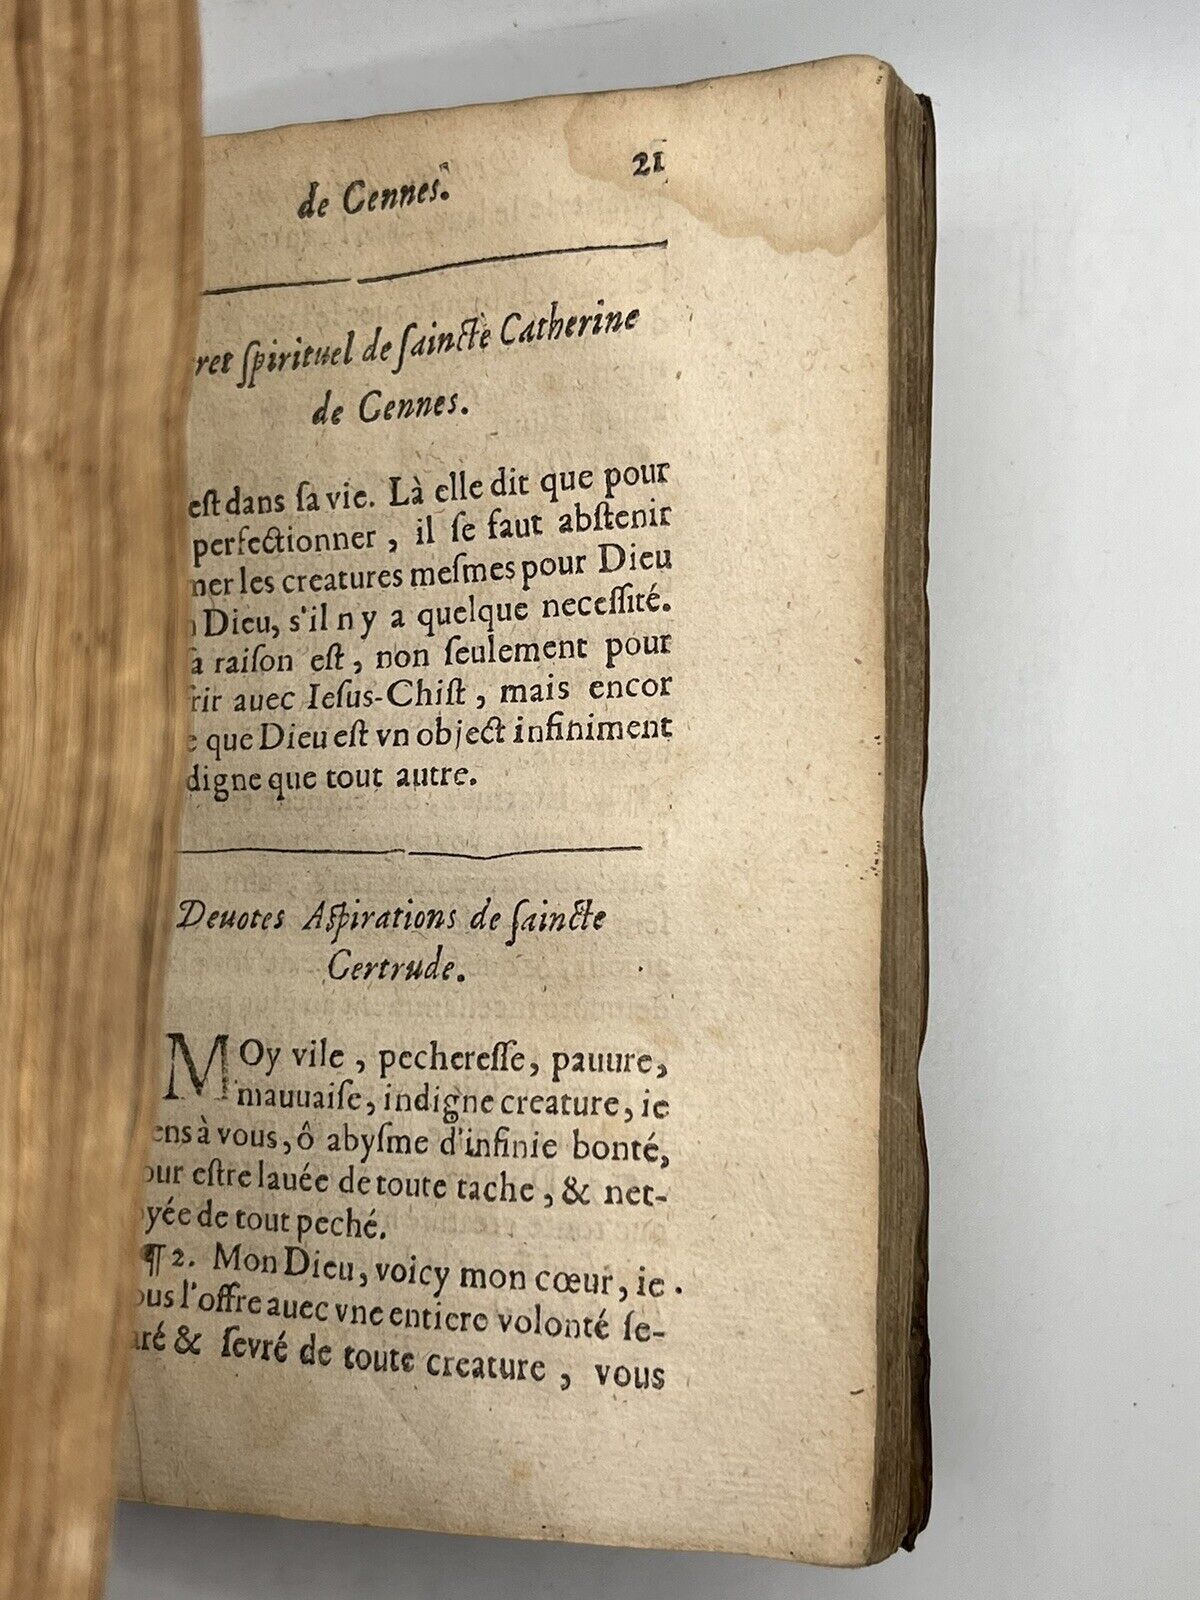 de Gennes. 21
ſpirituel de ſaincte Catherine
de Gennes.
eſt dans ſa vie. Là elle dit que pour
perfectionner, il ſe faut abſtenir
les creatures meſmes pour Dieu
Dieu, s'il n y a quelque neceſſité.
raiſon eſt, non ſeulement pour
auec Ieſus-Chiſt, mais encor
que Dieu eſt vn object infiniment
digne que tout autre.
Deuotes Aſpirations de ſaincte
Gertrude.
MOy vile, pechereſſe, pauure,
mauuaiſe, indigne creature, ie
à vous, ô abyſme d'infinie bonté,
eſtre lauée de toute tache, & net-
de tout peché.
¶ 2. Mon Dieu, voicy mon cœur, ie
l'offre auec vne entiere volonté ſe-
& ſevré de toute creature, vous